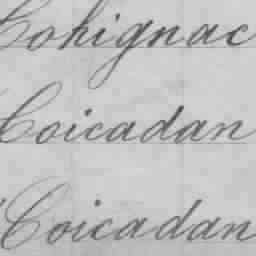 Cohignac
Coicadan
Coicadan